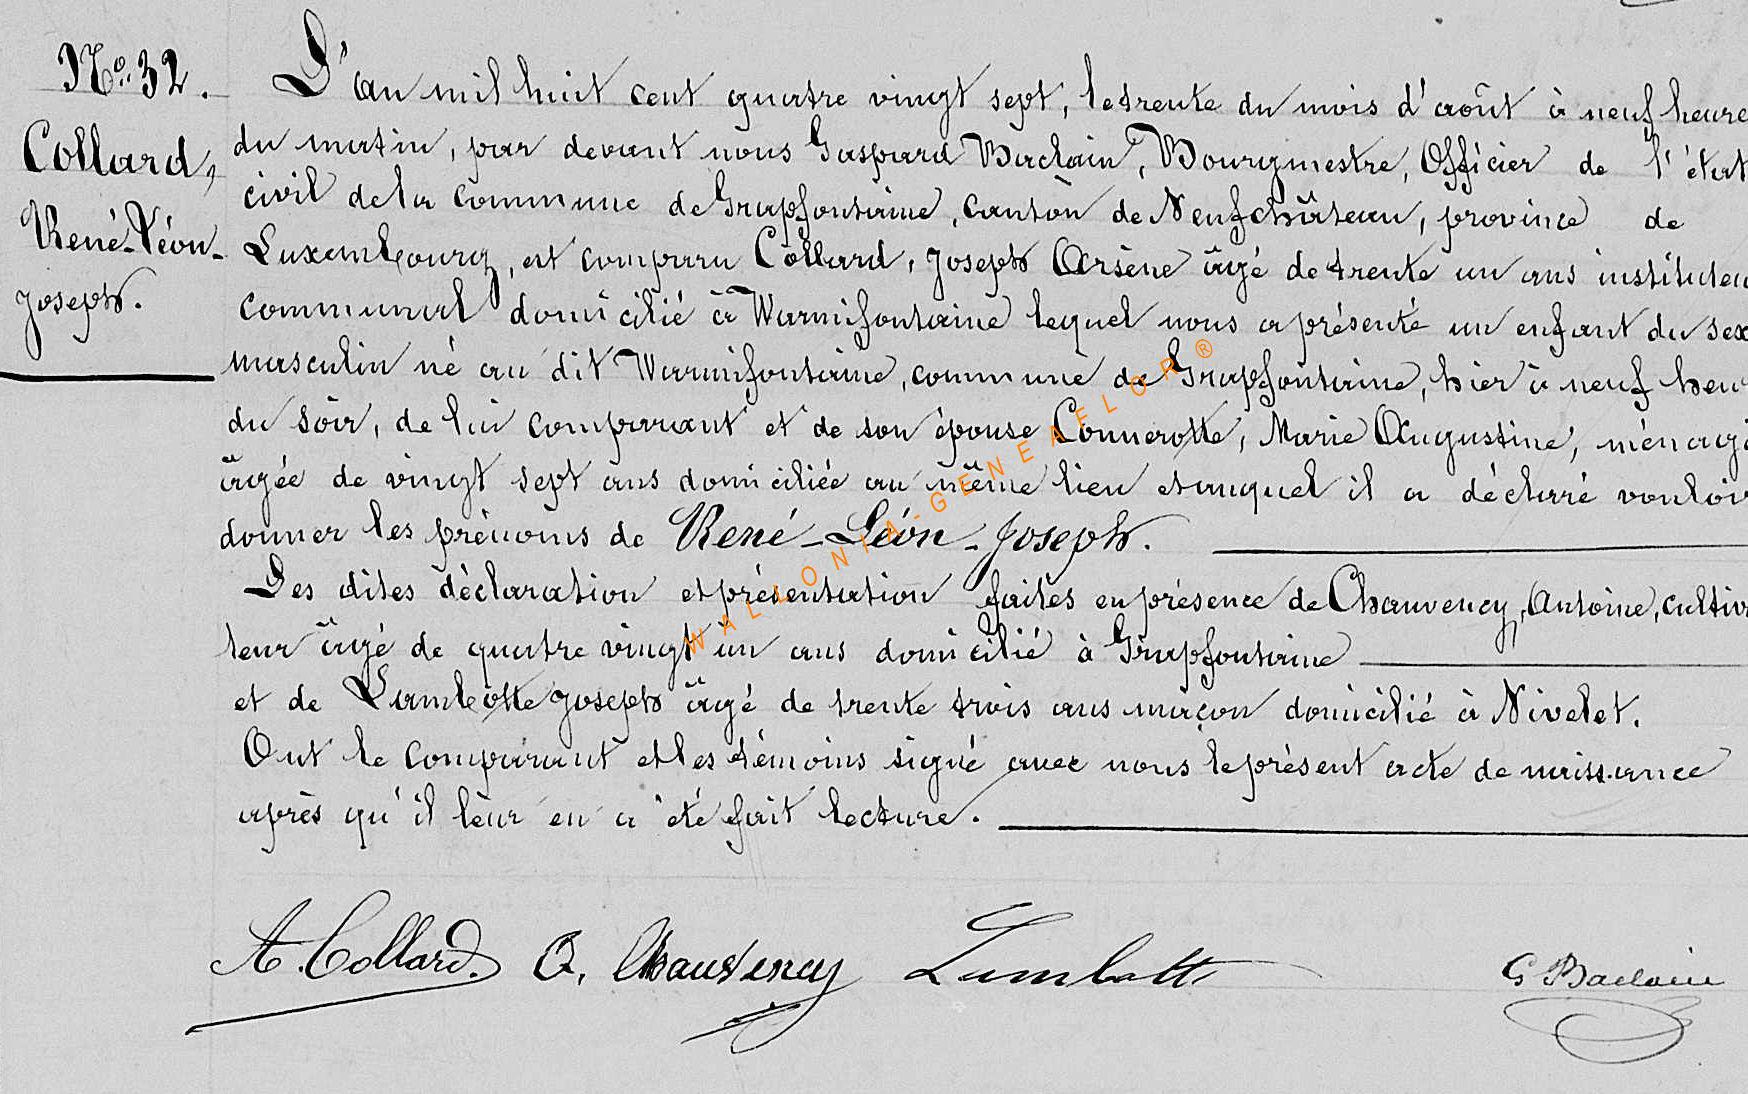 No. 32.
Collard,
René-Léon-
Joseph.
L'an mil huit cent quatre vingt sept, le trente du mois d'août à neuf heure
du matin, par devant nous Gaspard Baclain, Bourgmestre, Officier de l'état
civil de la commune de Grapfontaine, canton de Neufchâteau, province de
Luxembourg, est comparu Collard, Joseph Arsène âgé de trente un ans instituteu
communal domicilié à Warmifontaine lequel nous a présenté un enfant du sex
masculin né au dit Warmifontaine, commune de Grapfontaine, hier à neuf heu
du soir, de lui comparant et de son épouse Connerotte, Marie Augustine, ménag
âgée de vingt sept ans domiciliée au même lieu et auquel il a déclaré vouloir
donner les prénoms de René-Léon-Joseph.
Les dites déclaration et présentation faites en présence de Chauvency, Antoine, cultiv
teur âgé de quatre vingt un ans domicilié à Grapfontaine
et de Lambotte Joseph âgé de trente trois ans maçon domicilié à Nivelet.
Ont le comparant et les témoins signé avec nous le présent acte de naissance
après qu'il leur en a été fait lecture.
A. Collard. A. Chauvency Lambotte G Baclain
WALLONIA-GENEAFLOR®